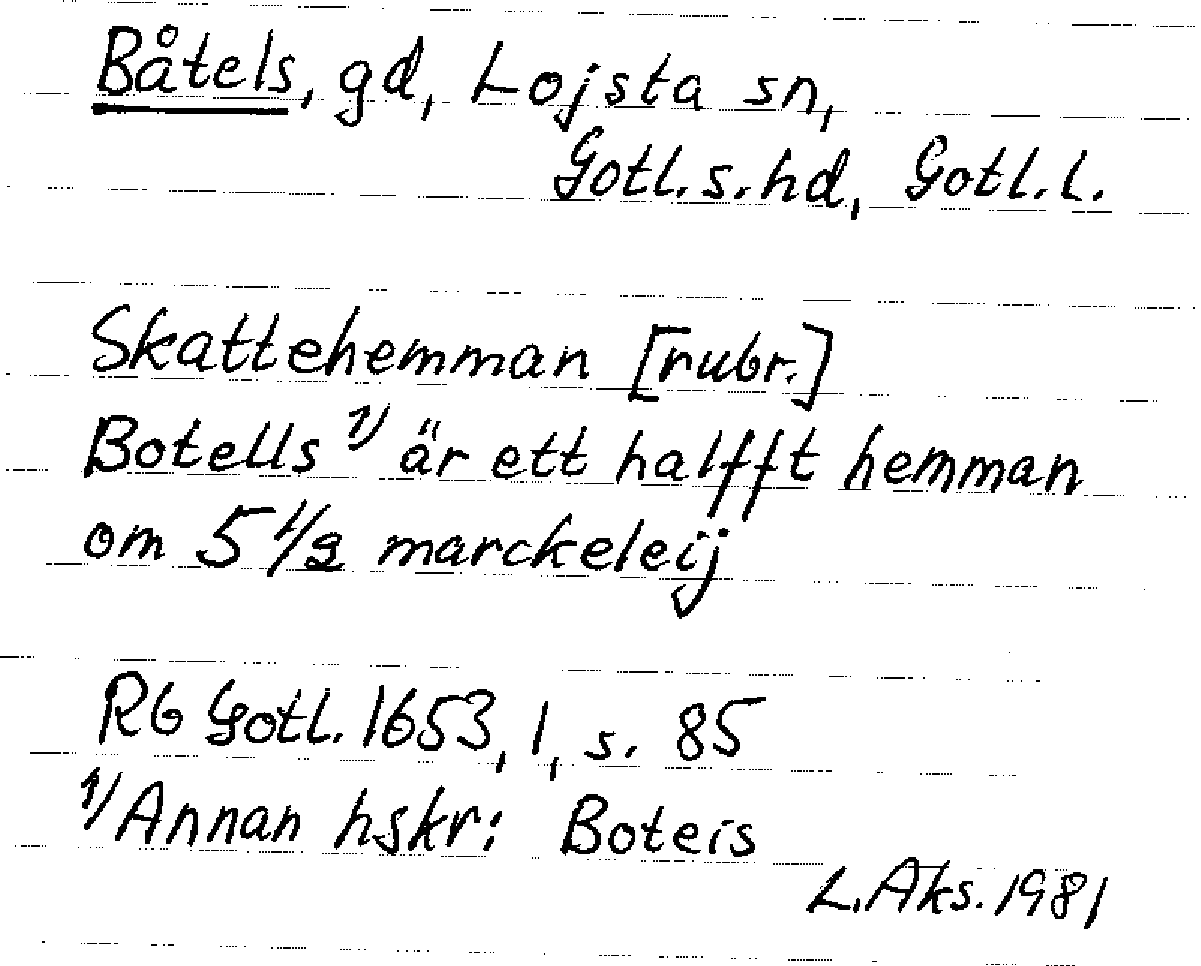 Båtels, gd, Lojsta sn,
Gotl.s.hd, Gotl.l.
Skattehemman [rubr.]
Botells 1/ är ett halfft hemman
om 5 1/2 marckeleij
Rb Gotl. 1653, 1, s. 85
1/ Annan hskr: Boteis
L. Aks. 1981